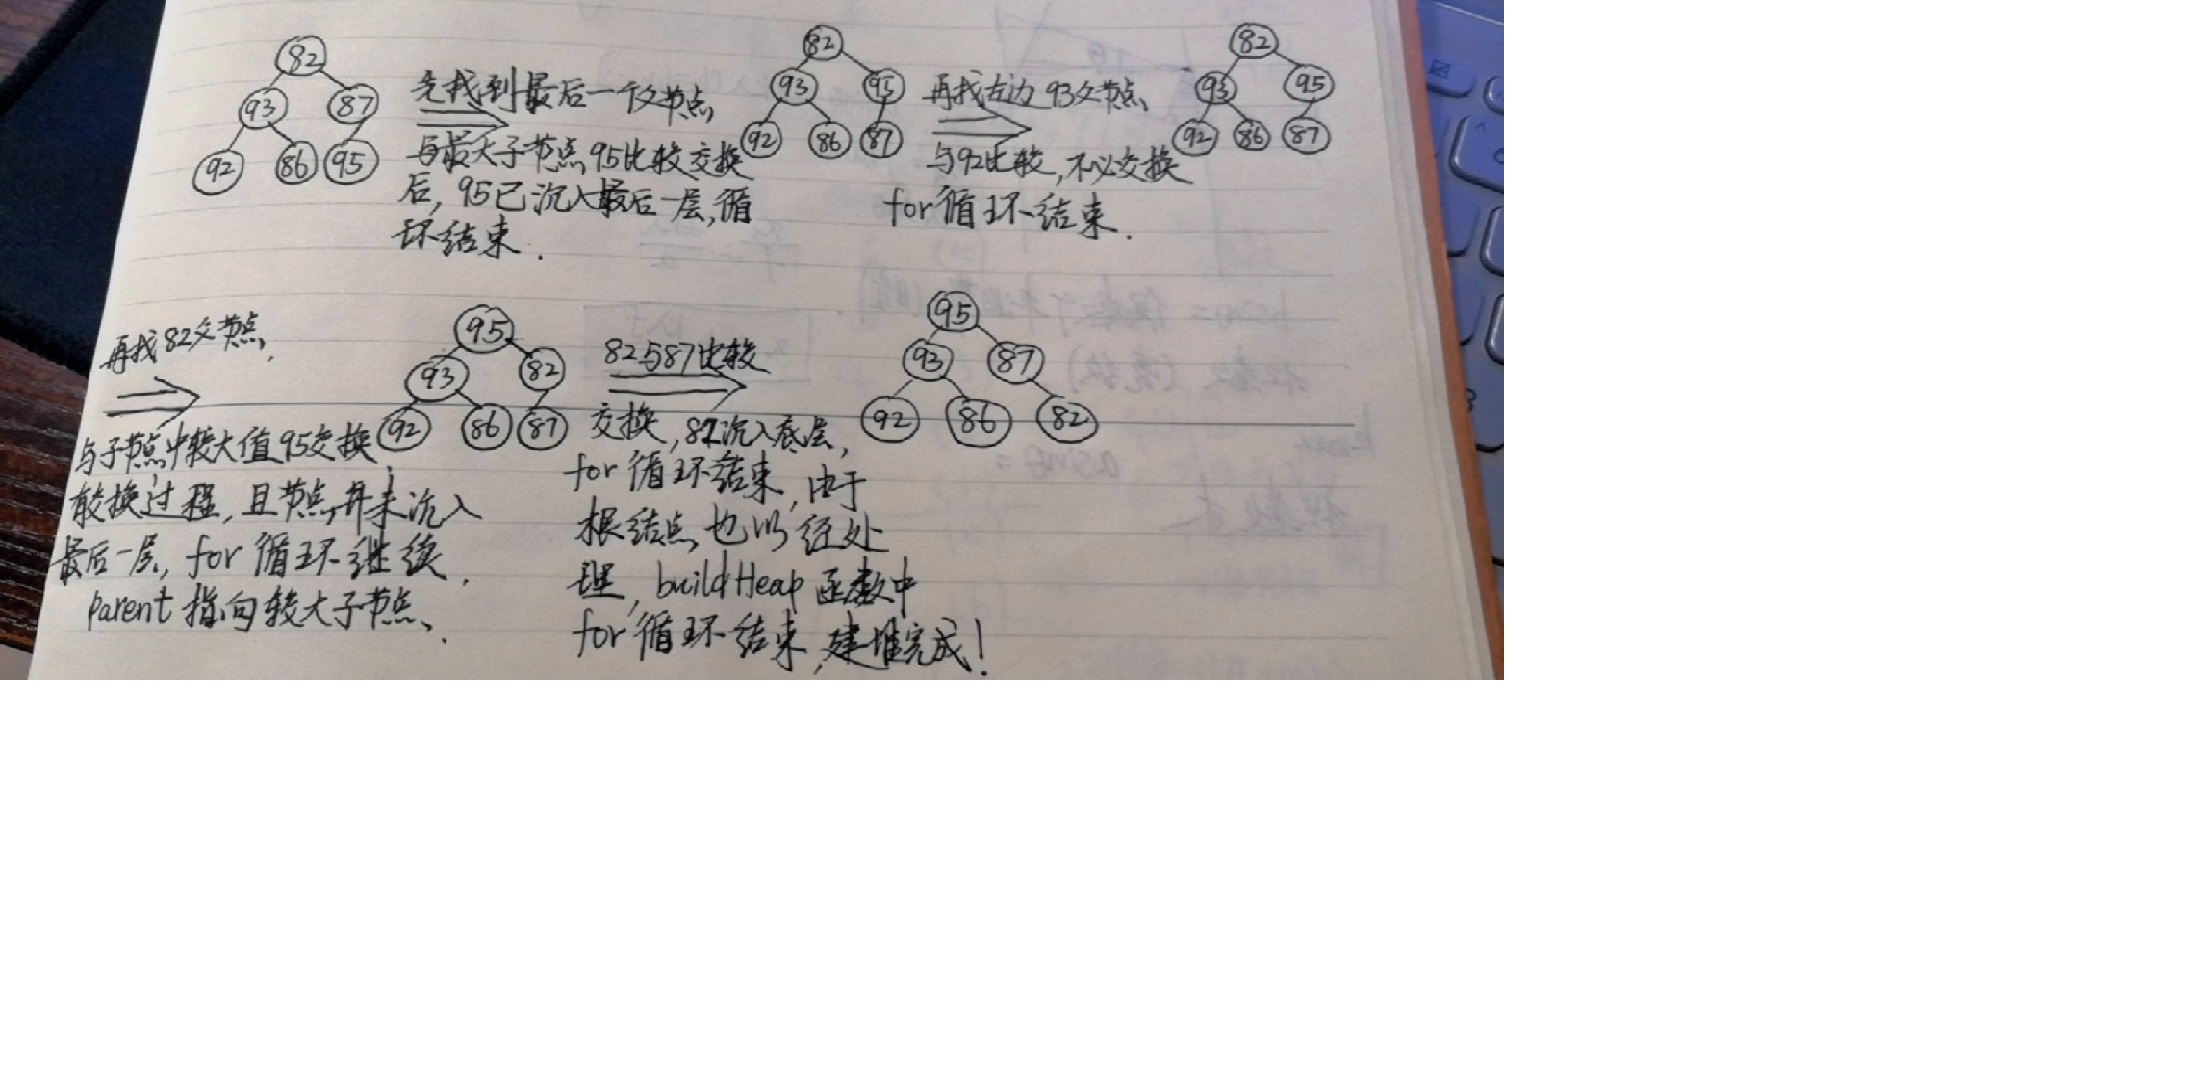 82
93 87
92 86 95
先找到最后一个父节点,
与最大子节点95比较交换
后, 95已沉入最后一层,循
环结束.
82
93 95
92 86 87
再找左边93父节点,
与92比较,不必交换
for循环结束.
82
93 95
92 86 87
再找82父节点,
与子节点中较大值95交换
有交换过程,且节点并未沉入
最后一层, for循环继续.
parent指向较大子节点.
95
93 82
92 86 87
82与87比较
交换,82沉入底层,
for循环结束,由于
根结点也以经处
理, buildHeap函数中
for循环结束,建堆完成!
95
93 87
92 86 82